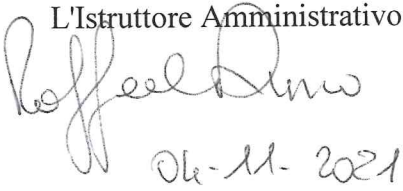 L'Istruttore Amministrativo
04-11-2021